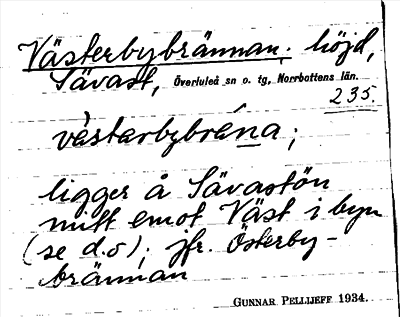 Västerbybrännan; höjd,
Sävast, Överluleå sn o. tg, Norrbottens län.
235.
vàstarbybréna;
ligger å Sävastön
mitt emot Väst i byn
(se d.o); jfr. Österby-
brännan
GUNNAR PELLIJEFF 1934.